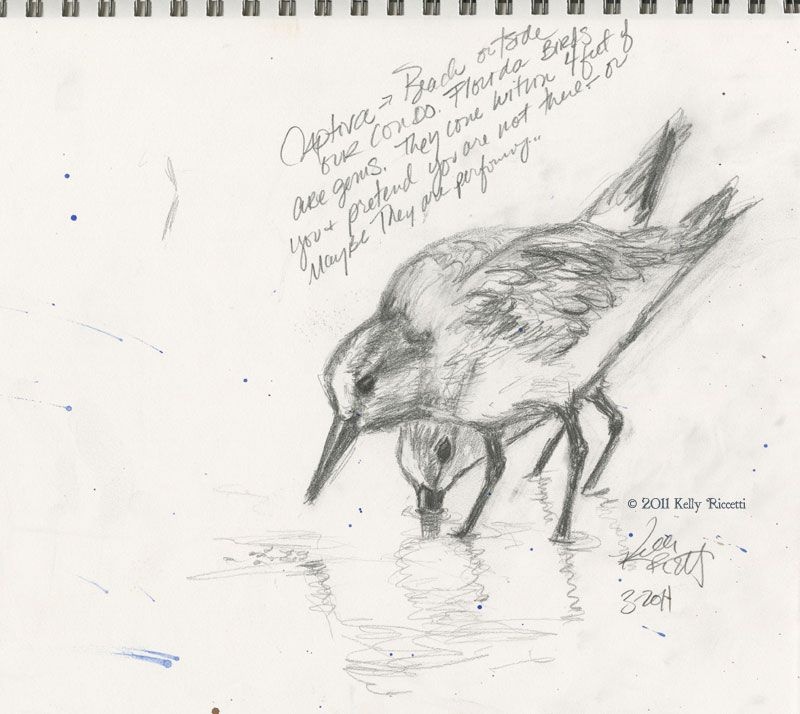 Captiva → Beach outside
our condo. Florida Birds
are gems. They come within 4 feet of
you + pretend you are not there – or
Maybe They are performing..
© 2011 Kelly Riccetti
3-2011